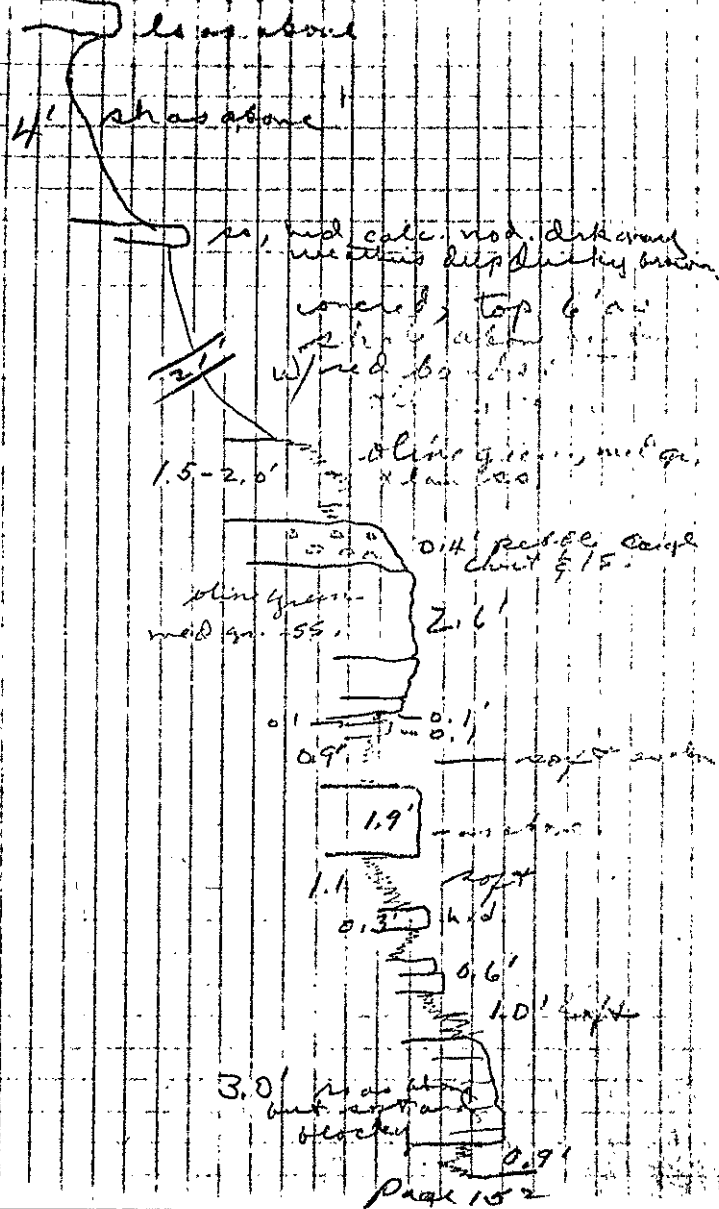 ls as above
4' sh as above
ss, hd calc. nod. drk gray
weathers deep dusky brown
covered, top 6' as
above
21' w/ red
1.5-2.0' olive green, med gr.
x lam ss
0.4' pebble congl
chert & ls.
olive green
med gr. ss.
2.6'
0.1 0.1'
0.1
0.9'
soft
1.9' as above
1.1 soft
0.3' hd
0.6'
1.0' soft
3.0' ss as above
but soft and
blocky
0.9'
Page 152